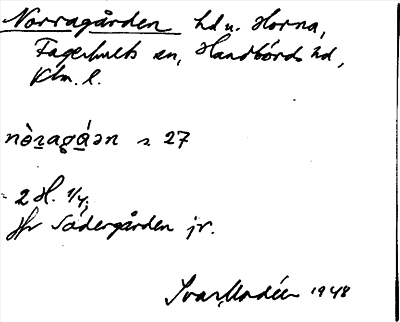 Norragården hd u. Horna,
Fagerhults sn, Handbörds hd,
Klm. l.
nòragá̱ən 27
2 H. 1/4;
Jfr Södergården jr.
Ivar Modéer 1948